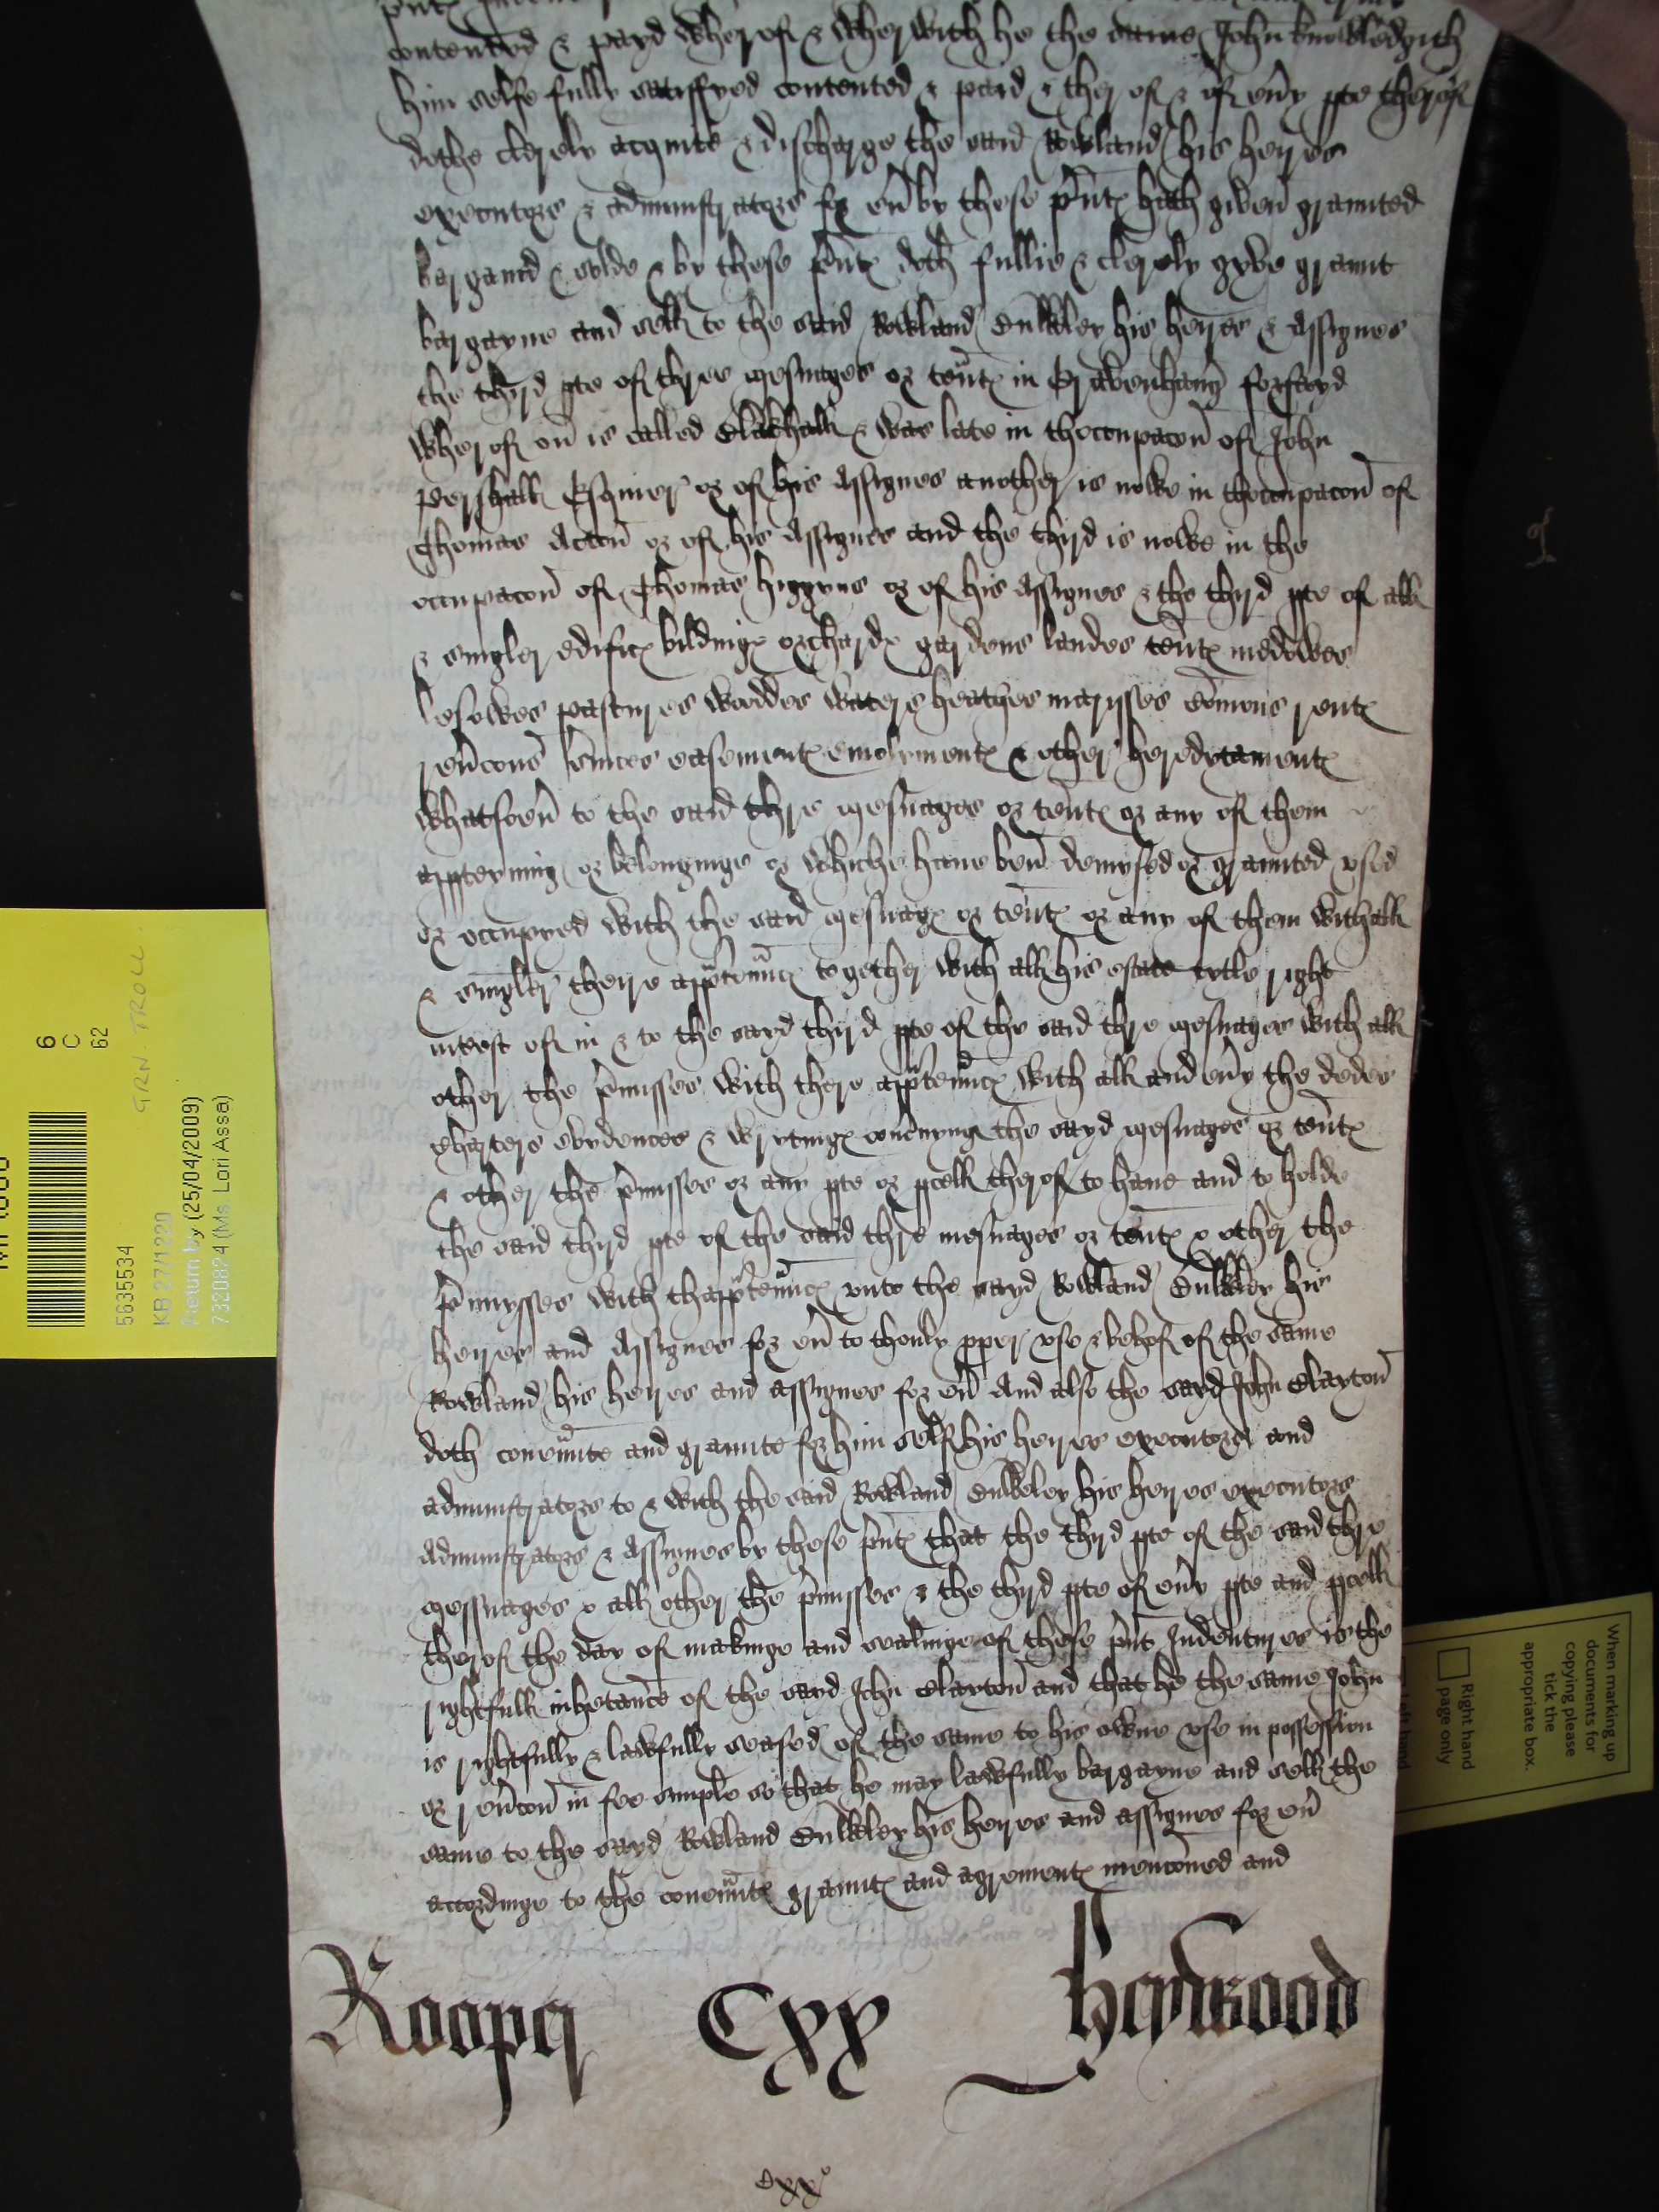 contented & payd wherof & wherwith he the same John knowledgith
him selfe fully satisfyed contented & paid & ther of & of eũy pte therof
dothe clerely acquite & discharge the said Rowland his heyres
executors & admynistrators for eũ by these p̃nt hath given graunted
bargaind & solde & by these p̃nt doth fullie & clerely gyve graunt
bargayne and sell to the said Rowland Bulkley his heires & Assignes
the third pte of three mesuages or teñt in forsayd
wherof on is called Blakhall & was late in thoccupacoñ of John
Pershall Esquier or of his Assignes another is nowe in thoccupacoñ of
Thomas Acton or of his Assignes and the third is nowe in the
occupacoñ of Thomas Higgyns or of his Assignes & the thyrd pte of all
& singler edific bildings orchards gardens landes teñt medowes
lesowes pastures woodds waters heathes marisses comons rent
reũcons s̃uices easement emolument & other heredytament
whatsoeũ to the said thre mesuages or teñt or any of them
appteyning or belonginge or whiche haue ben demysed or graunted vsed
or occupyed with the said mesuag or teñt or any of them withall
& singler theire apprtenñc together with all his estate tytle right
intrest of in & to the sayd thyrd pte of the said thre mesuages with all
other the p̃misses with there apprtenñc with all and eũy the dedes
charters evydences & wrytings concernyng the sayd mesuages or teñt
& other the p̃misses or any pte or pcell therof to haue and to holde
the said thyrd pte of the said thre mesuages or teñt & other the
p̃mysses with thapprtenñc vnto the sayd Rowland Bulkley his
heires and Assignes for eũ to thonly pper vse & behof of the same
Rowland his heyres and assignes for eũ And also the sayd John Clayton
doth coueñnte and graunte for him self his heyres executors and
admynistrators to & with the said Rowland Bulkeley his heyres executors
Admynistrators & Assignes by these p̃nt that the thyrd pte of the said thre
messuages & all other the p̃misses & the thyrd pte of eũy pte and pcell
therof the day of makinge and sealinge of these p̃nt Indentures is the
rightfull inheritance of the sayd John Clayton and that he the same John
is rightfully & lawfully seased of the same to his owne vse in possession
or reũcon in fee simple so that he may lawfully bargayne and sell the
same to the sayd Rowland Bulkley his heyres and assignes for eũ
accordinge to the coueñnt graunt and agrement mencioned and
Rooper Cxx Heywood
Cxxº
6
C
62
GRN. TROLL.
5635534
KB 27/1220
Return by (25/04/2009)
7320824 (Ms. Lori Assa)
When marking up
documents for
copying please
tick the
appropriate box.
Right hand
page only
Left hand